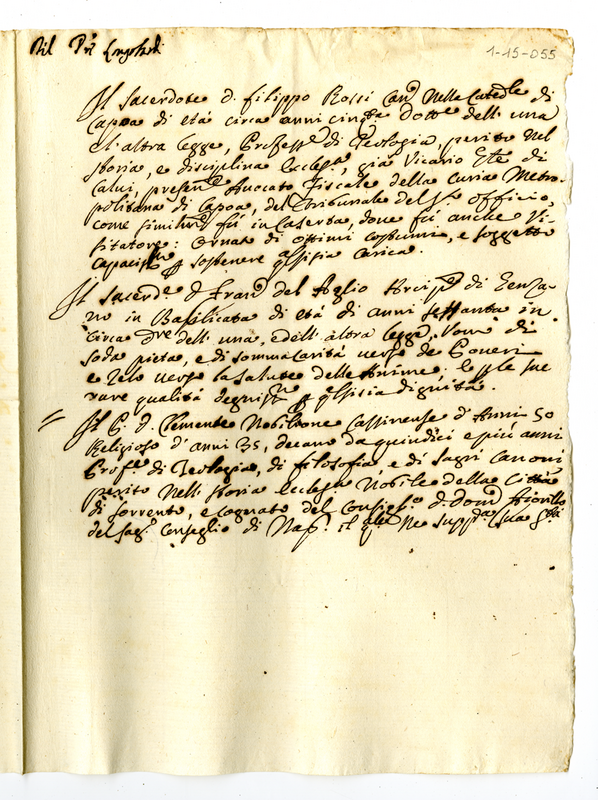 Del Pre
1-15-055
Il Sacerdote D. Filippo Rossi Canco Nella Catedle di
Capoa di età circa anni cinqta Dotte dell' una
el' altra legge, Professe di Teologia, perito nel
storia, e disciplina Eccles.a, già Vicario Gle di
Calvi, presente Avvocato Fiscale della Curia Metro-
politana di Capoa, del Tribunale del S. Officio,
come similmte fù in Caserta, dove fù anche Vi-
sitatore: ornato di ottimi costumi, e soggetto
capacissmo p sostenere qlsisia carica.
Il Sacerde D. Franco del Aglio Arcipte di Genza-
no in Basilicata di età di anni settanta in
circa Dre dell' una, e dell' altra legge, Uomo di
soda pietà, e di somma carità verso de Poveri
e zelo verso la salute delle Anime; le sue
rare qualità degnissmo p qlsisia dignità.
Il P. D. Clemente Nobilione Cassinense d' Anni 50
Religioso d' anni 35, decano da quindici e più anni
Profe. di Teologia, di filosofia, e di sagri canoni
perito Nell' storia Ecclesca Nobile della Città
di Sorrento, e cognato del Consiglo D. Domco Fiorillo
del sago Conseglio di Napi. il qle Ne suppca sua